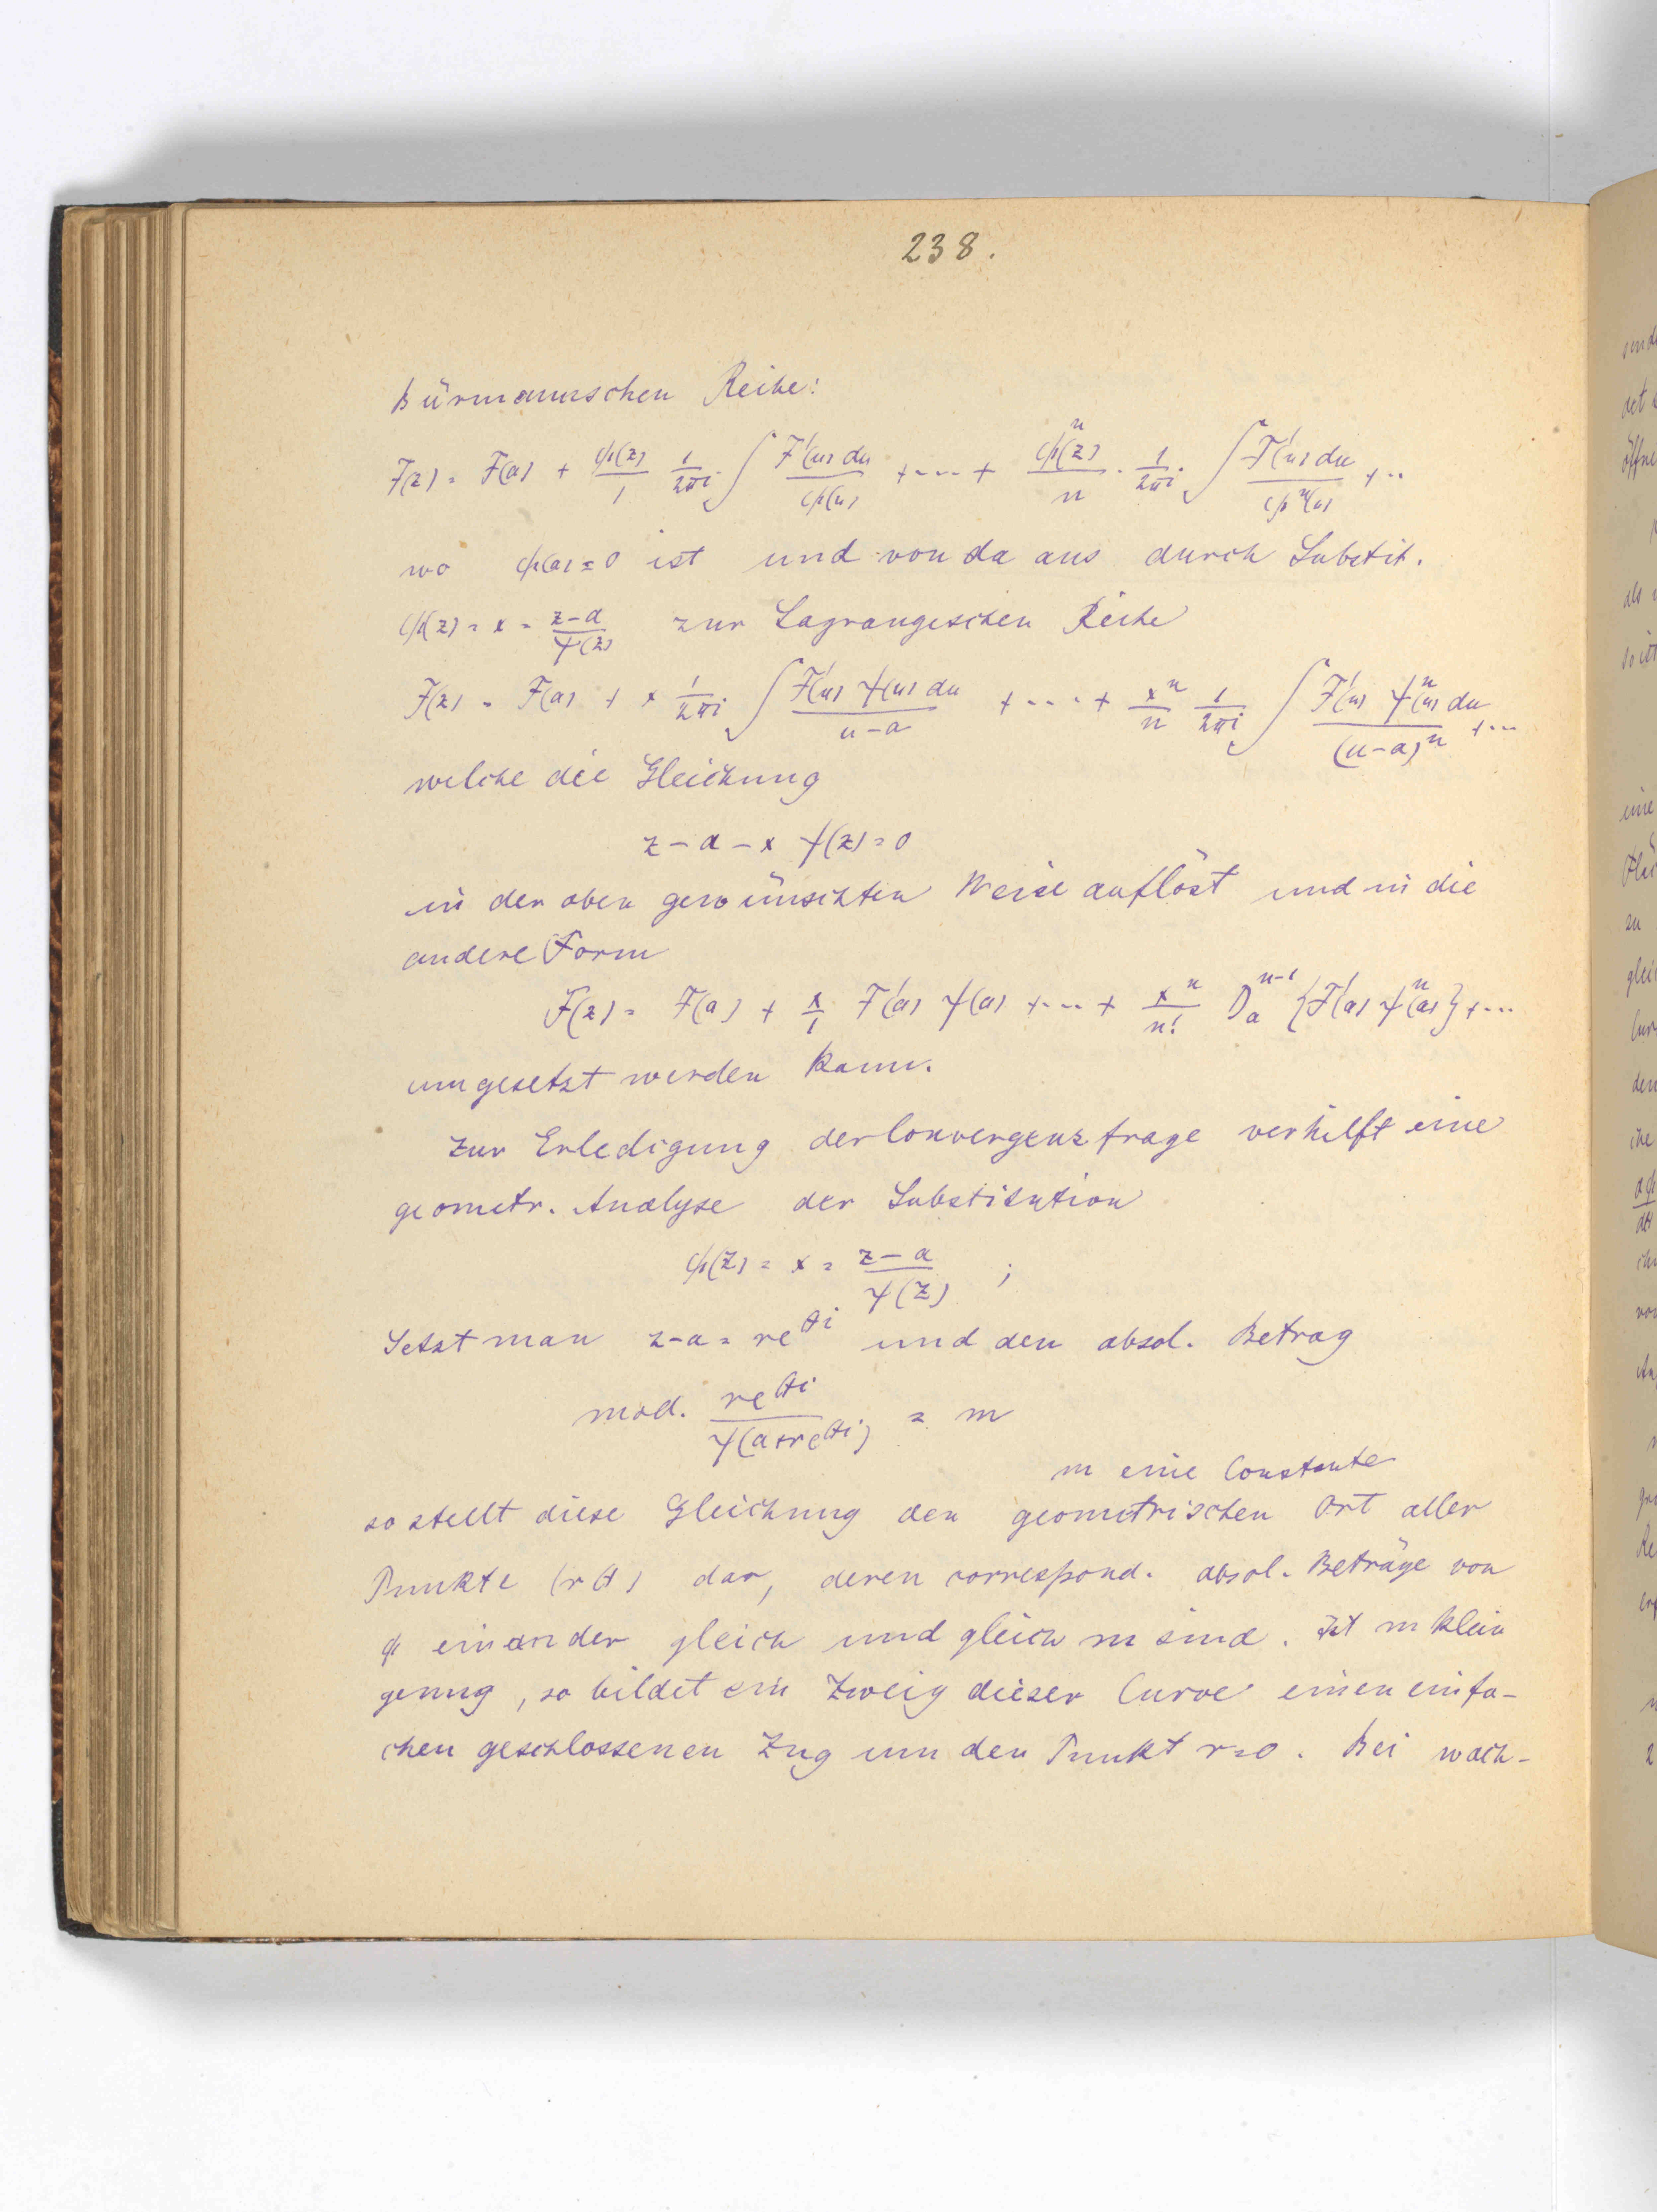 238.
Bürmannschen Reihe:
F(z) = F(a) + φ(z)/1 1/2πi ∫ F'(u) du / φ(u) + ---- + φⁿ(z)/n · 1/2πi · ∫ F'(u) du / φⁿ(u) + ··
wo φ(a) = 0 ist und von da aus durch Substit.
φ(z) = x = z-a/ψ(z) zur Lagrangeschen Reihe
F(z) = F(a) + x 1/2πi ∫ F'(u) ψ(u) du / u-a + ---- + xⁿ/n 1/2πi ∫ F'(u) ψⁿ(u) du / (u-a)ⁿ + ---
welche die Gleichung
z - a - x ψ(z) = 0
in der oben gewünschten Weise auflöst und in die
andere Form
F(z) = F(a) + x/1 F'(a) ψ(a) + --- + xⁿ/n! Dₐⁿ⁻¹ {F'(a) ψⁿ(a)} + ---
umgesetzt werden kann.
Zur Erledigung der Convergenzfrage verhilft eine
geometr. Analyse der Substitution
φ(z) = x = z-a/ψ(z) ;
Setzt man z-a = re^θi und den absol. Betrag
mod. re^θi / ψ(a+re^θi) = m
m eine Constante
so stellt diese Gleichung den geometrischen Ort aller
Punkte (rθ) dar, deren correspond. absol. Beträge von
φ einander gleich und gleich m sind. Ist m klein
genug, so bildet ein Zweig dieser Curve einen einfa-
chen geschlossenen Zug um den Punkt r=0. Bei wach-